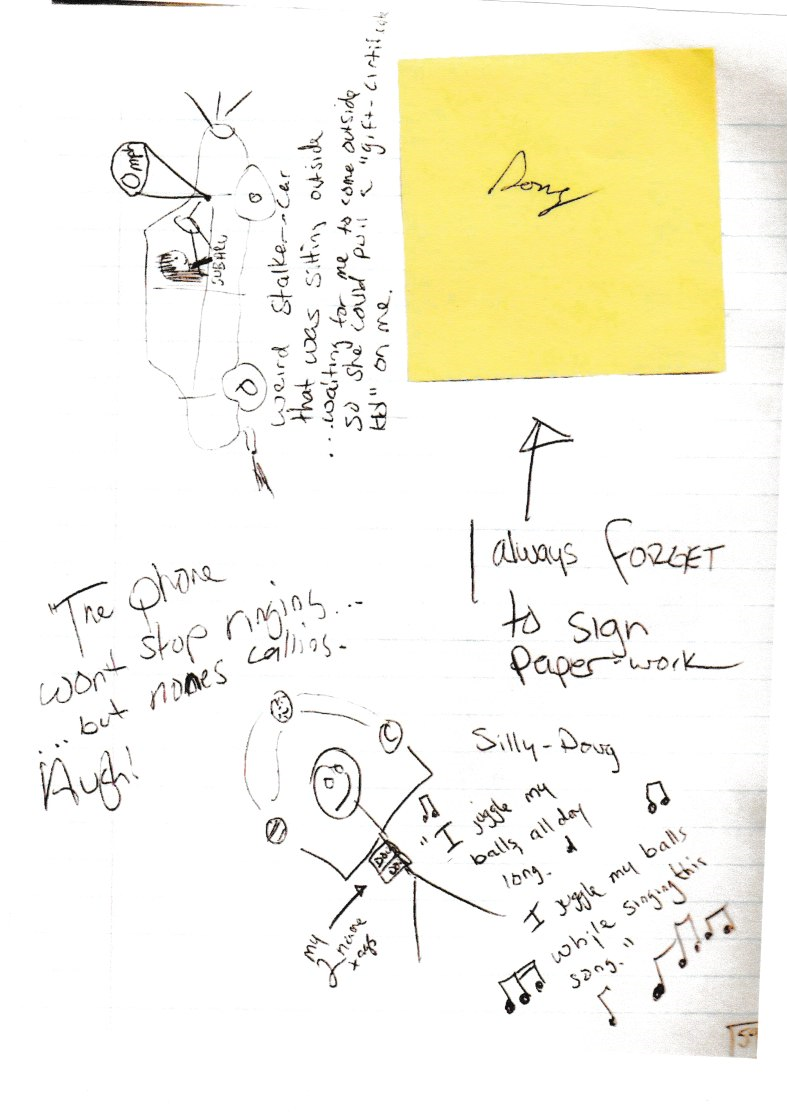 Doug
0 mph
SUBARU
Weird Stalker-Car
that was sitting outside
...waiting for me to come outside
so she could pull a "gift-certificate
on me.
I always FORGET
to sign
paper-work
"The phone
wont stop ringing...
...but no one's calling.
Augh!
Silly-Doug
"I juggle my
balls, all day
long.
I juggle my balls
while singing this
song."
DOUG
my
2 name
tags